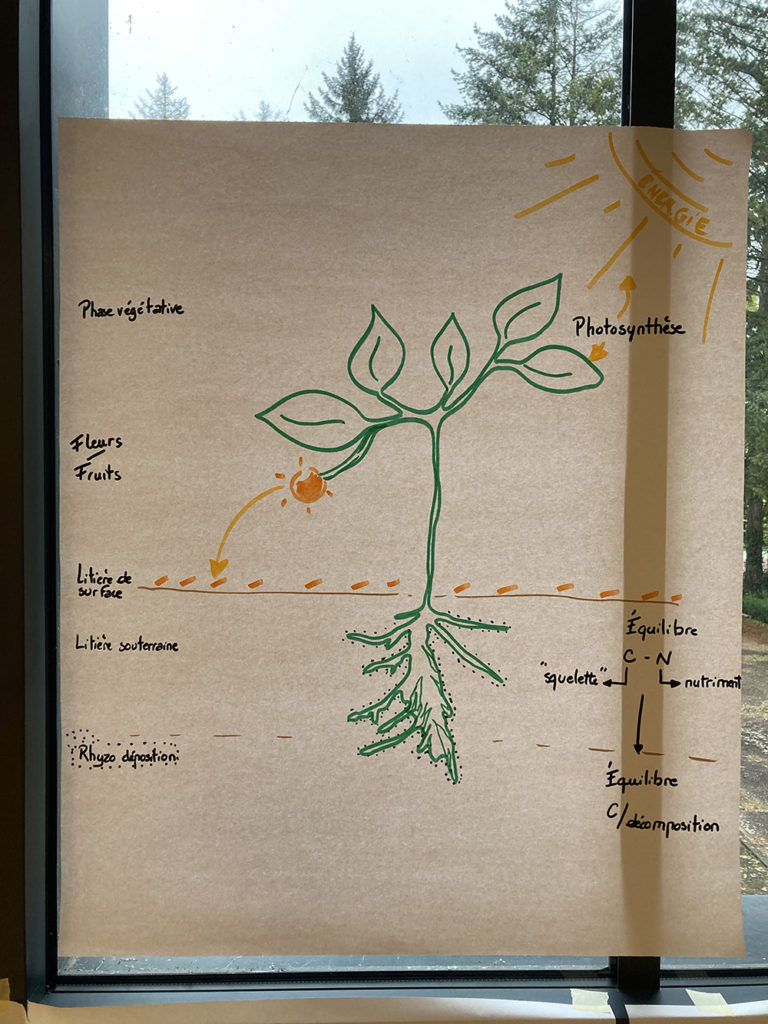 ENERGIE
Phase végétative
Photosynthèse
Fleurs
/
Fruits
Litière de
surface
Litière souterraine
Équilibre
C - N
"squelette"
nutriment
Rhyzo déposition
Équilibre
C/décomposition